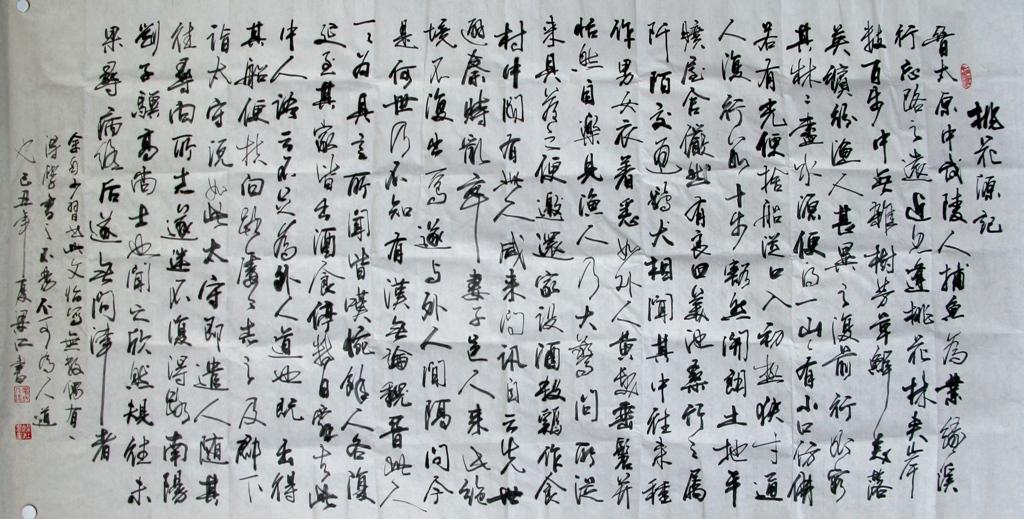 桃花源記
晉太原中武陵人捕魚為業緣溪
行忘路之遠近逢桃花林夾岸
數百步中無雜樹芳草鮮美落
英繽紛漁人甚異之復前行欲窮
其林林盡水源便得一山山有小口彷彿
若有光便捨船從口入初極狹才通
人復行數十步豁然開朗土地平
曠屋舍儼然有良田美池桑竹之屬
阡陌交通雞犬相聞其中往來種
作男女衣著悉如外人黃髮垂髫並
怡然自樂見漁人乃大驚問所從
來具答之便邀還家設酒殺雞作食
村中聞有此人咸來問訊自云先世
避秦時亂率妻子邑人來此絕
境不復出焉遂與外人間隔問今
是何世乃不知有漢無論魏晉此人
一一為具言所聞皆嘆惋餘人各復
延至其家皆出酒食停數日辭去此
中人語云不足為外人道也既出得
其船便扶向路處處誌之及郡下
詣太守說如此太守即遣人隨其
往尋向所誌遂迷不復得路南陽
劉子驥高尚士也聞之欣然規往未
果尋病終後遂無問津者